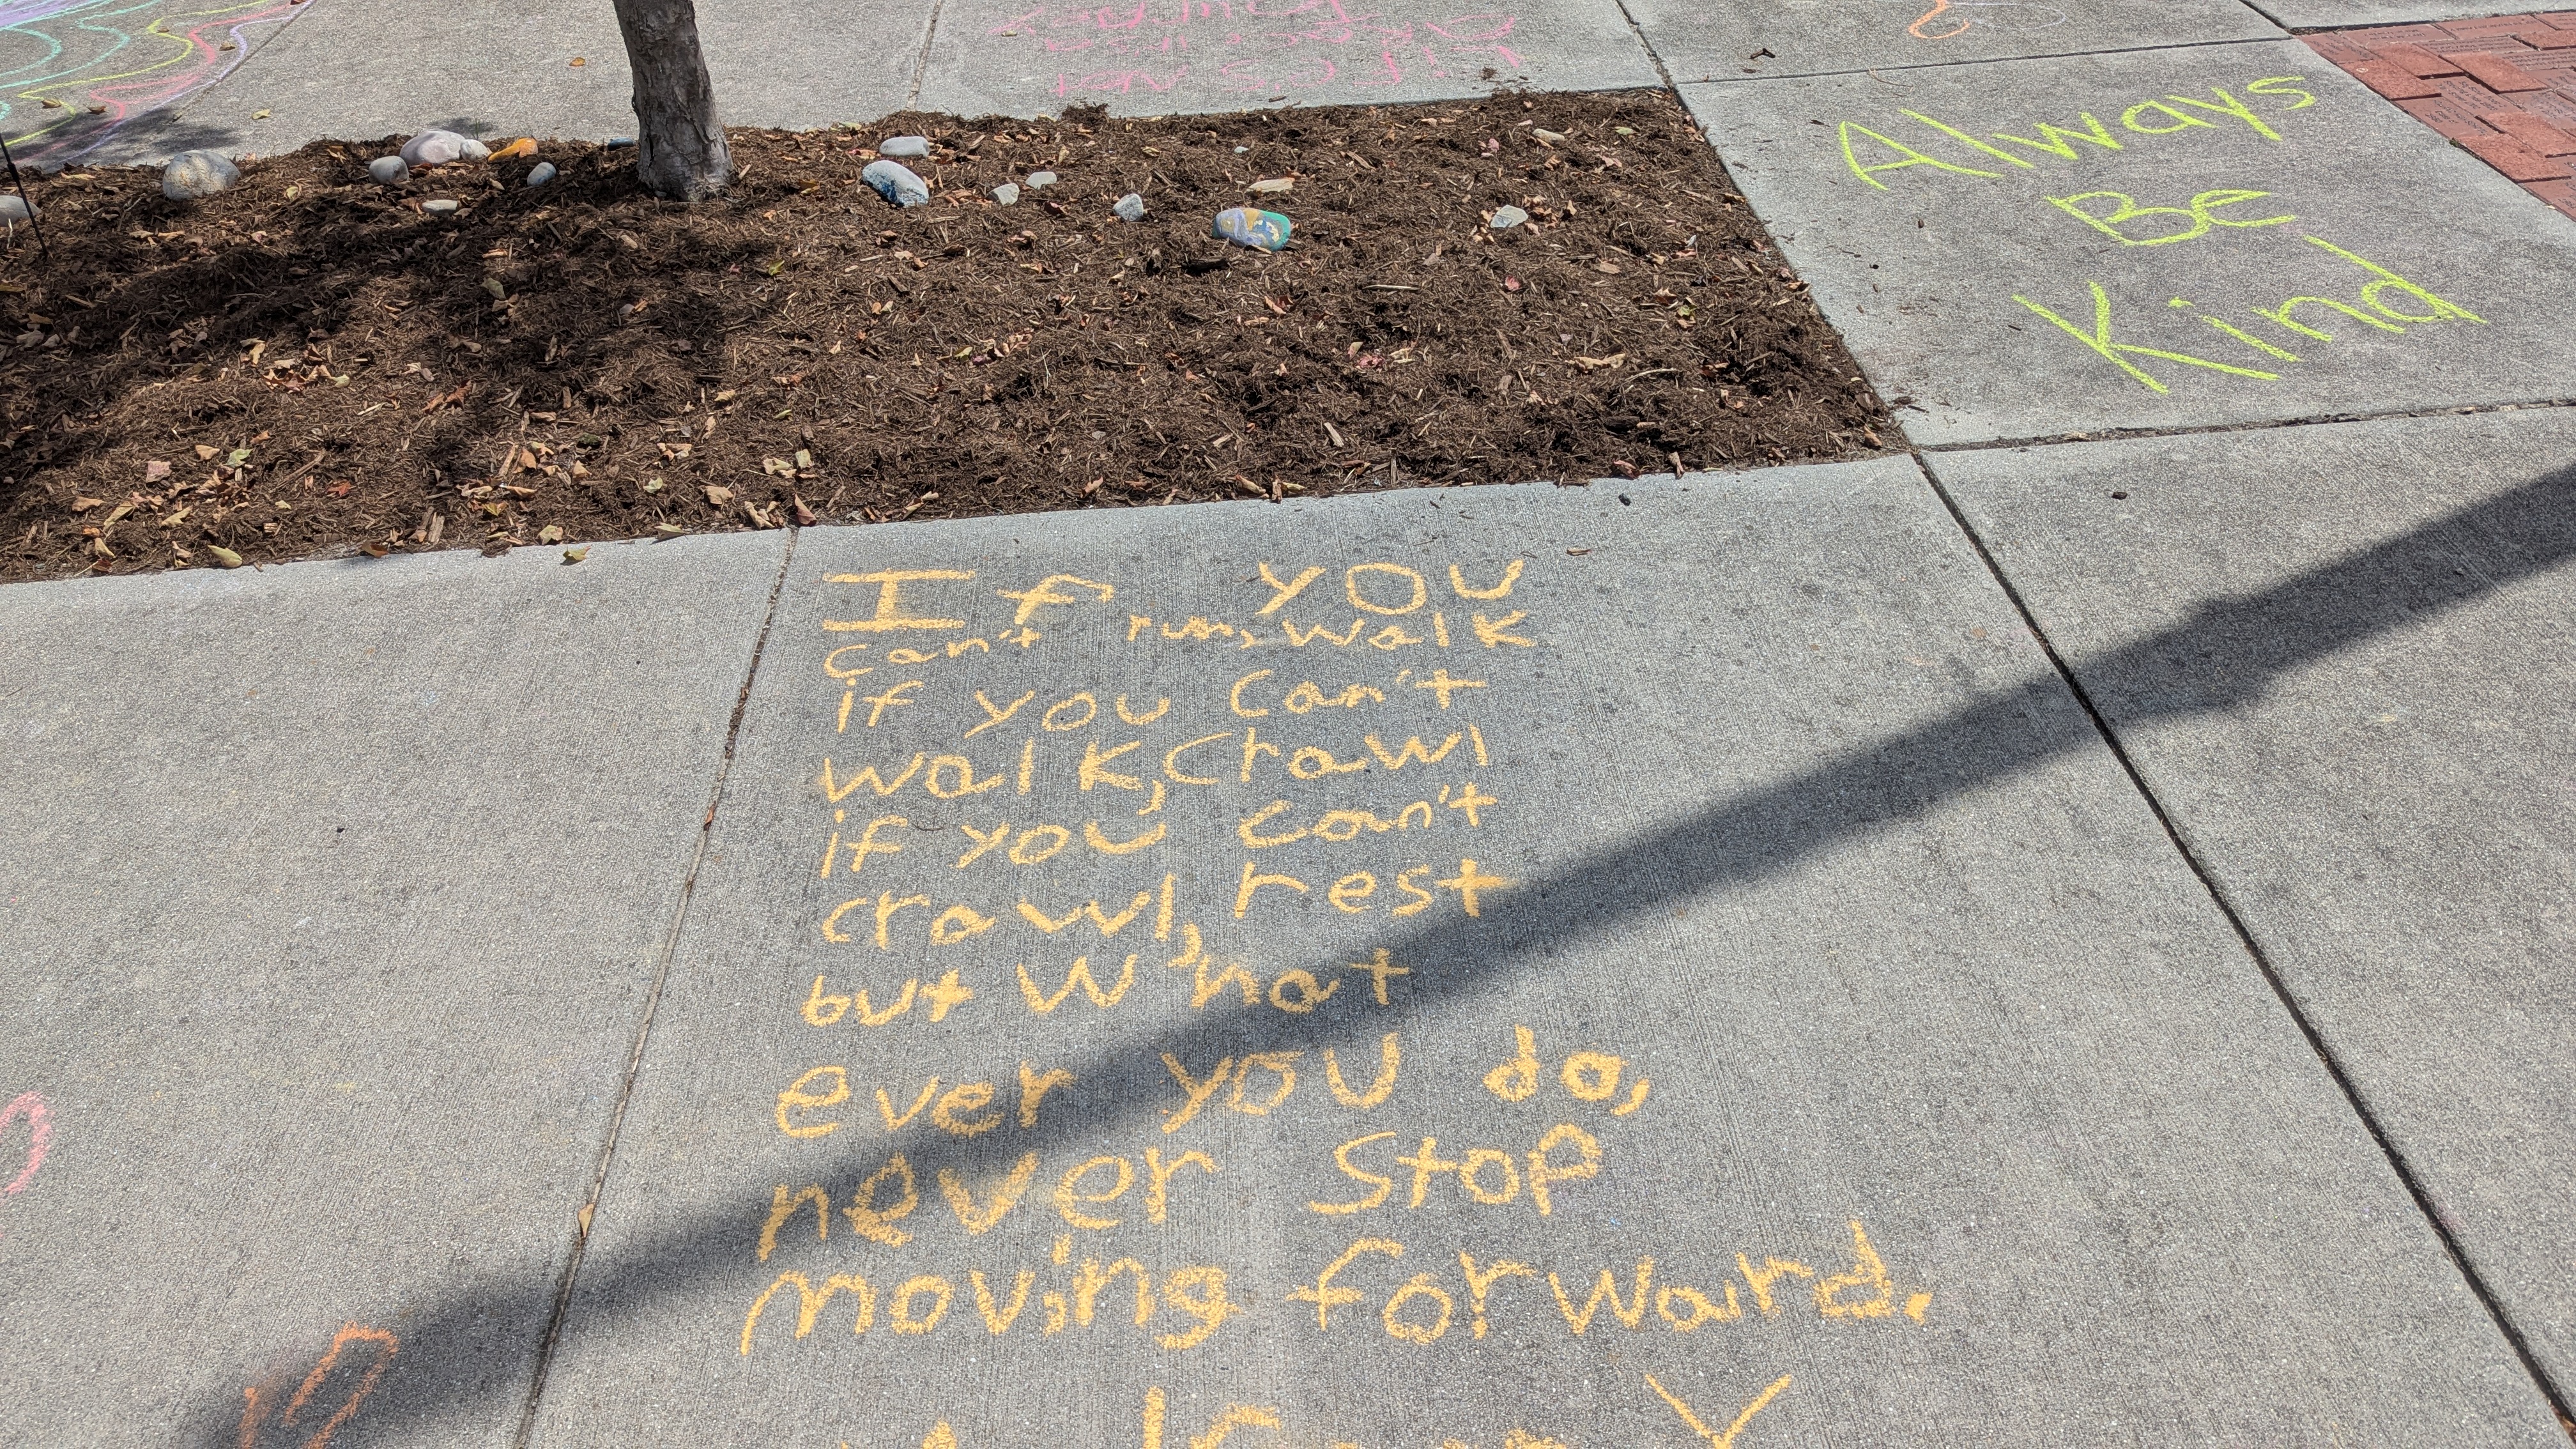 Life is Not
Always
Be
Kind
If you
can't run, walk
if you can't
walk, crawl
if you can't
crawl, rest
but what
ever you do,
never stop
moving forward.